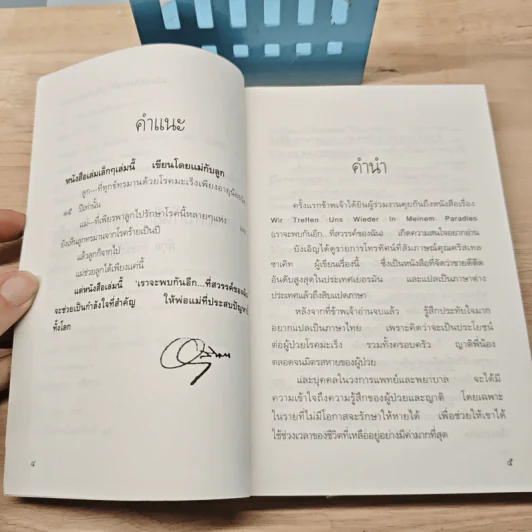 คำแนะ
หนังสือเล่มเล็กๆเล่มนี้ เขียนโดยแม่กับลูก
ลูก...ที่ทุกข์ทรมานด้วยโรคมะเร็งเพียงอายุน้อย
๑๕ ปีเท่านั้น
แม่...ที่เพียรพาลูกไปรักษาโรคนี้หลายๆแห่ง
ยังเห็นลูกทรมานจากโรคร้ายเป็นปี
แล้วลูกก็จากไป
แม่ช่วยลูกได้เพียงแค่นี้
แต่หนังสือเล่มนี้ 'เราจะพบกันอีก...ที่สวรรค์ของฉัน
จะช่วยเป็นกำลังใจที่สำคัญ ให้พ่อแม่ที่ประสบปัญหา
ทั้งโลก
๔
คำนำ
ครั้งแรกข้าพเจ้าได้ยินผู้ร่วมงานคุยกันถึงหนังสือเรื่อง
Wir Treffen Uns Wieder In Meinem Paradies
(เราจะพบกันอีก...ที่สวรรค์ของฉัน) เกิดความสนใจอยากอ่าน
บังเอิญได้ดูรายการโทรทัศน์ที่สัมภาษณ์คุณคริสเทล
ซาเคิท ผู้เขียนเรื่องนี้ ซึ่งเป็นหนังสือที่จัดว่าขายดีติด
อันดับสูงสุดในประเทศเยอรมัน และแปลเป็นภาษาต่าง
ประเทศแล้วถึงสิบแปดภาษา
หลังจากที่ข้าพเจ้าอ่านจบแล้ว รู้สึกประทับใจมาก
อยากแปลเป็นภาษาไทย เพราะคิดว่าจะเป็นประโยชน์
ต่อผู้ป่วยโรคมะเร็ง รวมทั้งครอบครัว ญาติพี่น้อง
ตลอดจนมิตรสหายของผู้ป่วย
และบุคคลในวงการแพทย์และพยาบาล จะได้มี
ความเข้าใจถึงความรู้สึกของผู้ป่วยและญาติ โดยเฉพาะ
ในรายที่ไม่มีโอกาสจะรักษาให้หายได้ เพื่อช่วยให้เขาได้
ใช้ช่วงเวลาของชีวิตที่เหลืออยู่อย่างมีค่ามากที่สุด
๕